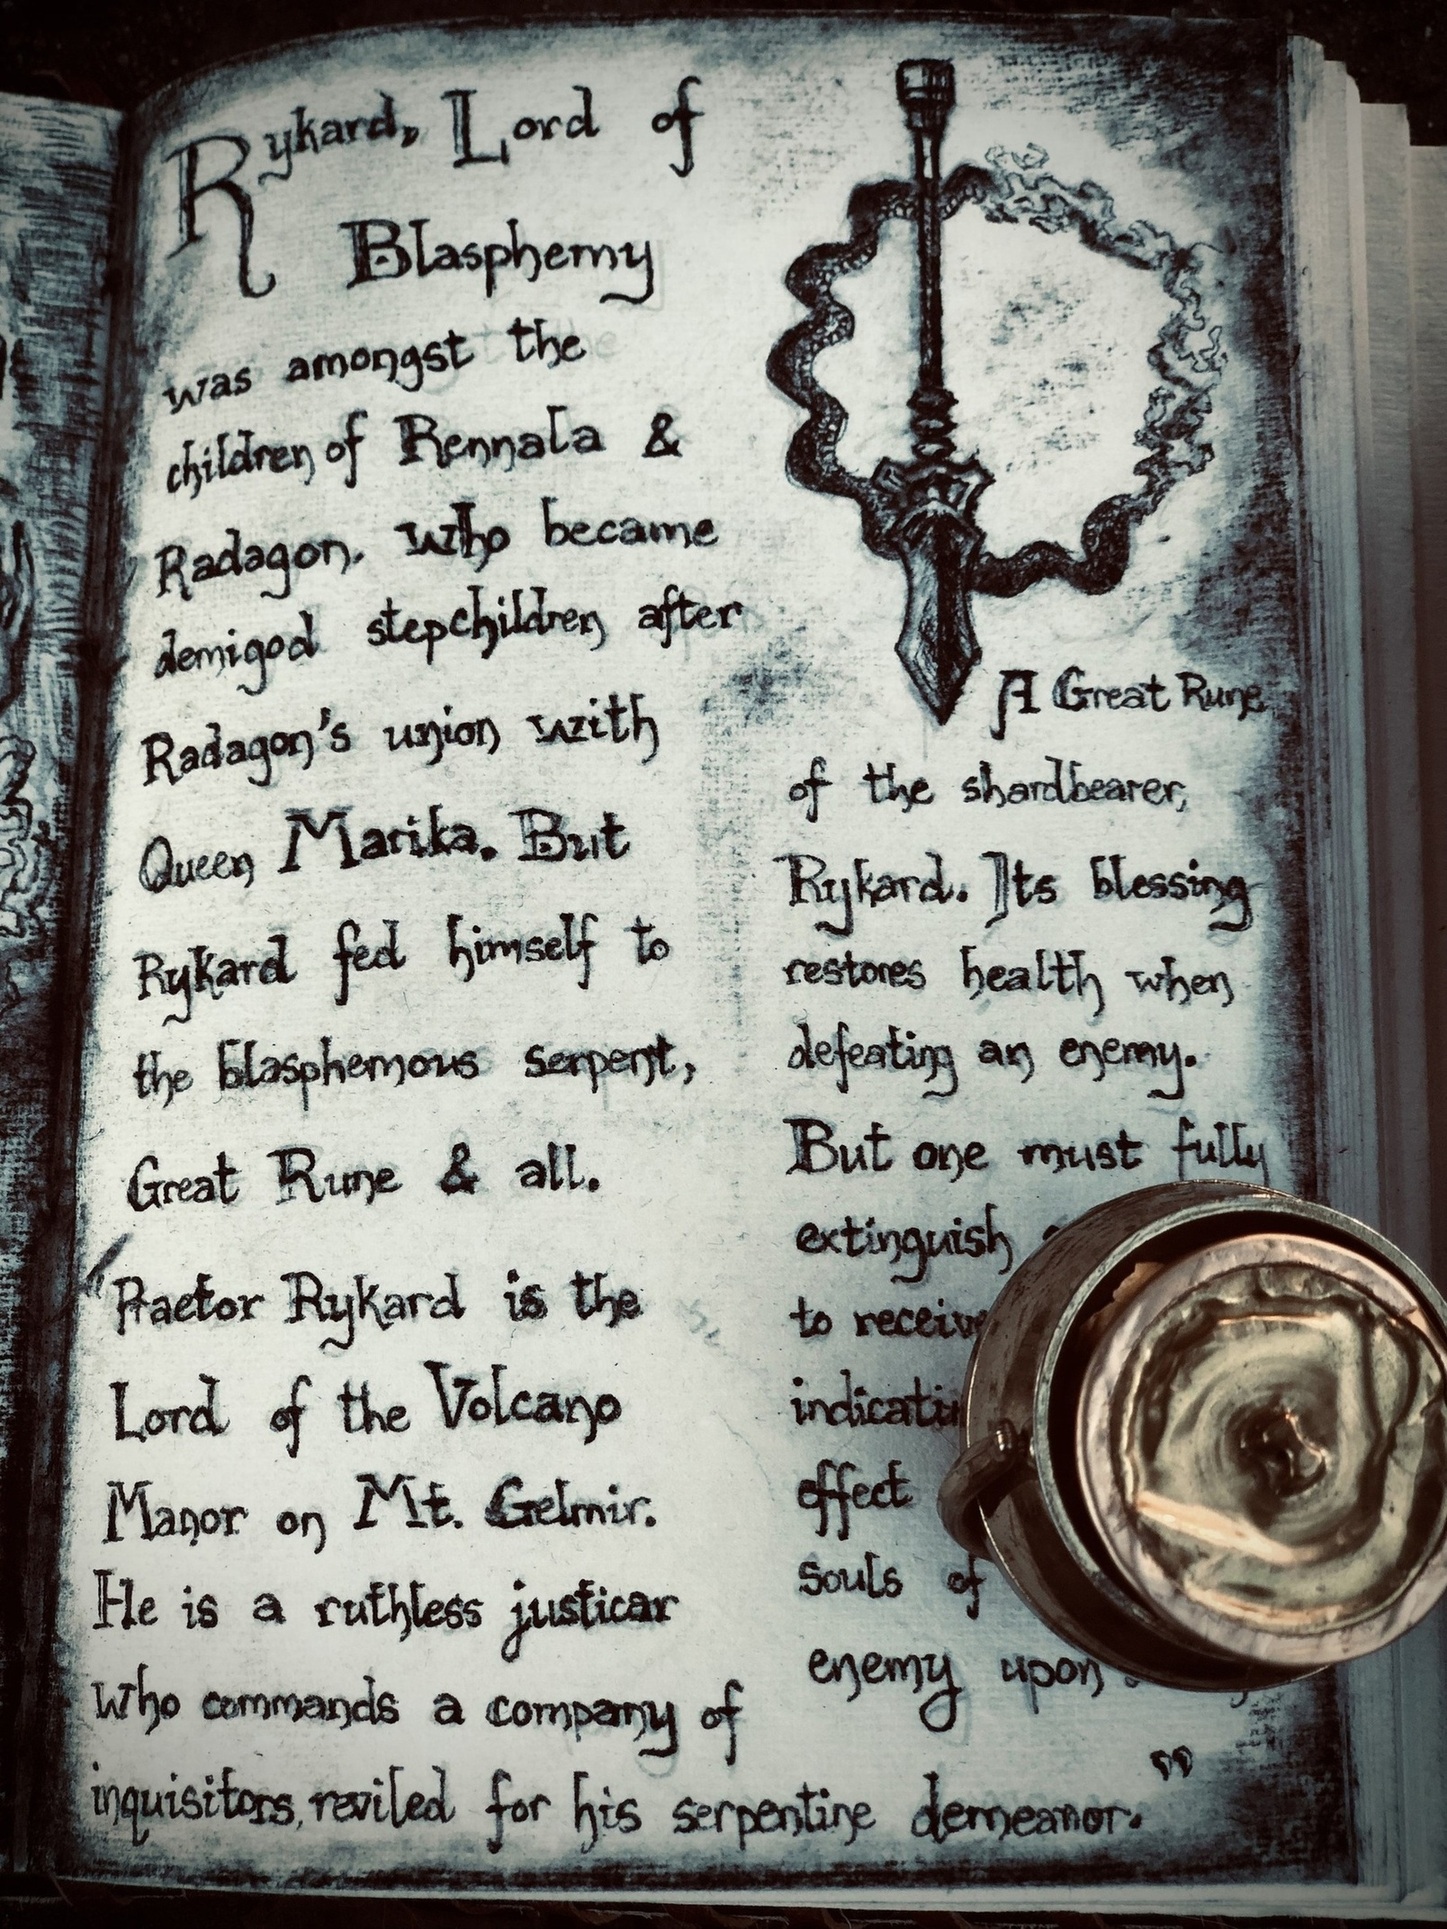 Rykard, Lord of
Blasphemy
was amongst the
children of Rennala &
Radagon. Who became
demigod stepchildren after
Radagon's union with
Queen Marika. But
Rykard fed himself to
the blasphemous serpent,
Great Rune & all.
Praetor Rykard is the
Lord of the Volcano
Manor on Mt. Gelmir.
He is a ruthless justicar
who commands a company of
inquisitors, reviled for his serpentine demeanor.
A Great Rune
of the shardbearer,
Rykard. Its blessing
restores health when
defeating an enemy.
But one must fully
extinguish
to
effect
souls of
enemy upon